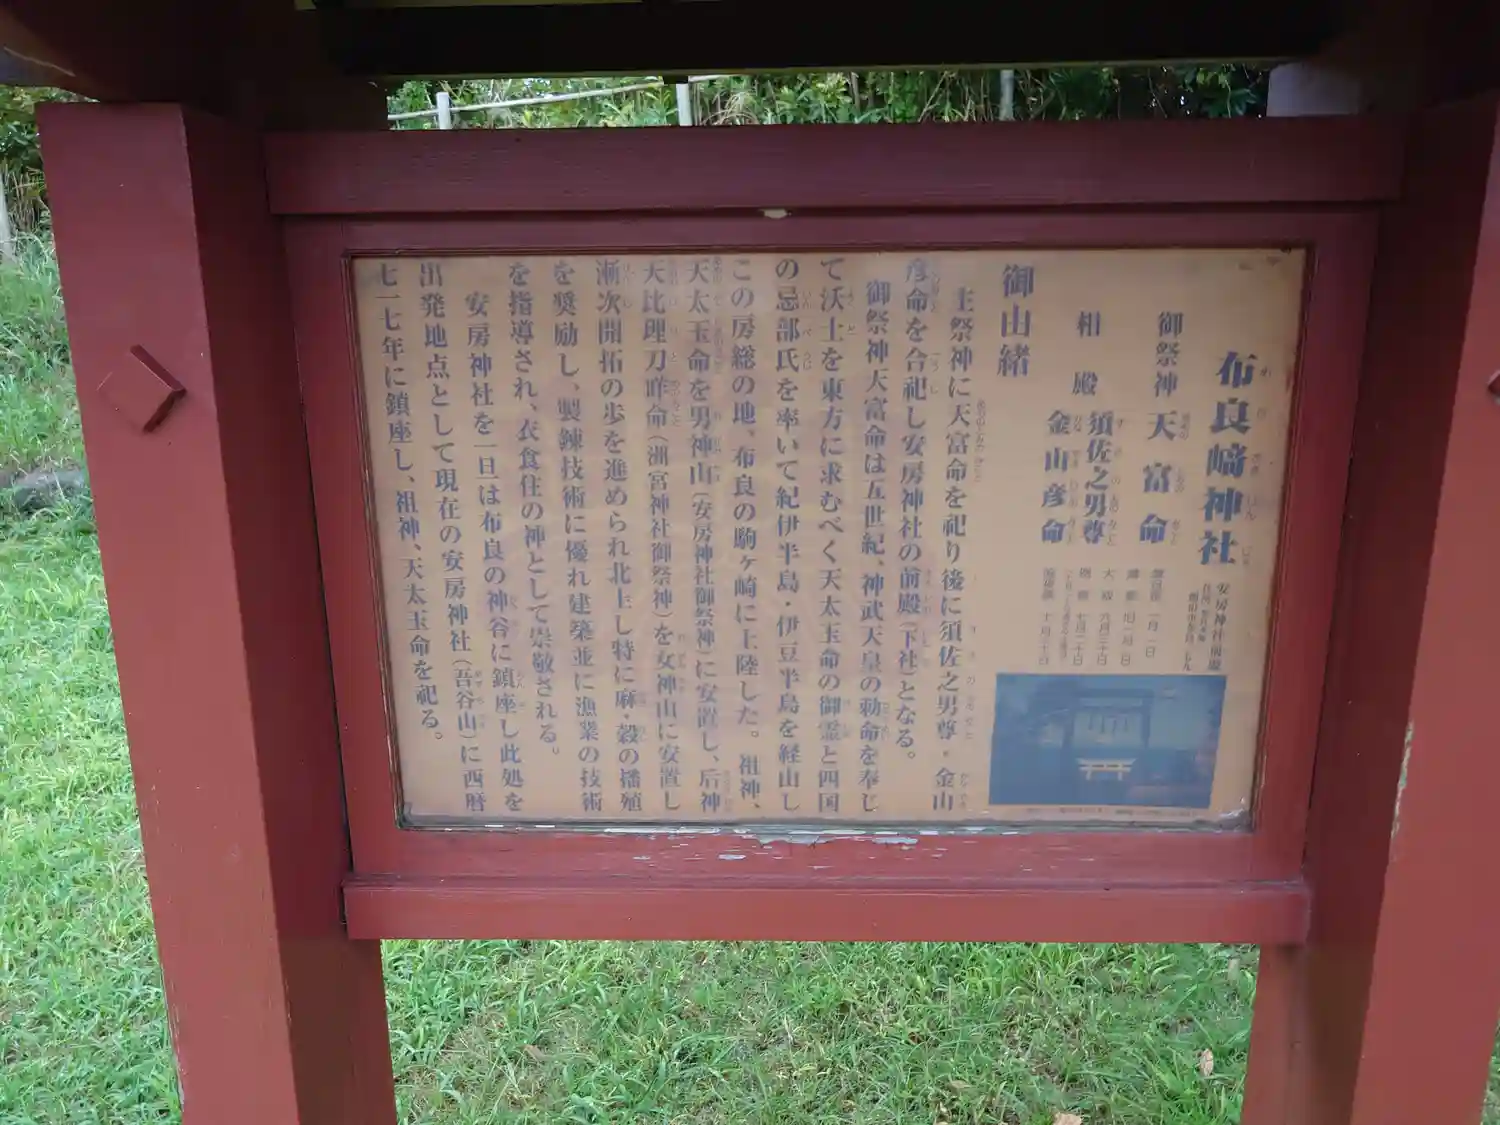 布良﨑神社
安房神社前殿
御祭神 天富命
相殿 須佐之男尊
金山彦命
一月一日
旧一月一日
大祓 六月三十日
例祭 七月二十日
御由緒
主祭神に天富命を祀り後に須佐之男尊・金山
彦命を合祀し安房神社の前殿(下社)となる。
御祭神天富命は五世紀、神武天皇の勅命を奉じ
て沃土を東方に求むべく天太玉命の御霊と四国
の忌部氏を率いて紀伊半島・伊豆半島を経由し
この房総の地、布良の駒ヶ崎に上陸した。祖神、
天太玉命を男神山(安房神社御祭神)に安置し、后神
天比理刀咩命(洲宮神社御祭神)を女神山に安置し
漸次開拓の歩を進められ北上し特に麻・穀の播殖
を奨励し、製錬技術に優れ建築並に漁業の技術
を指導され、衣食住の神として崇敬される。
安房神社を一旦は布良の神谷に鎮座し此処を
出発地点として現在の安房神社(吾谷山)に西暦
七一七年に鎮座し、祖神、天太玉命を祀る。